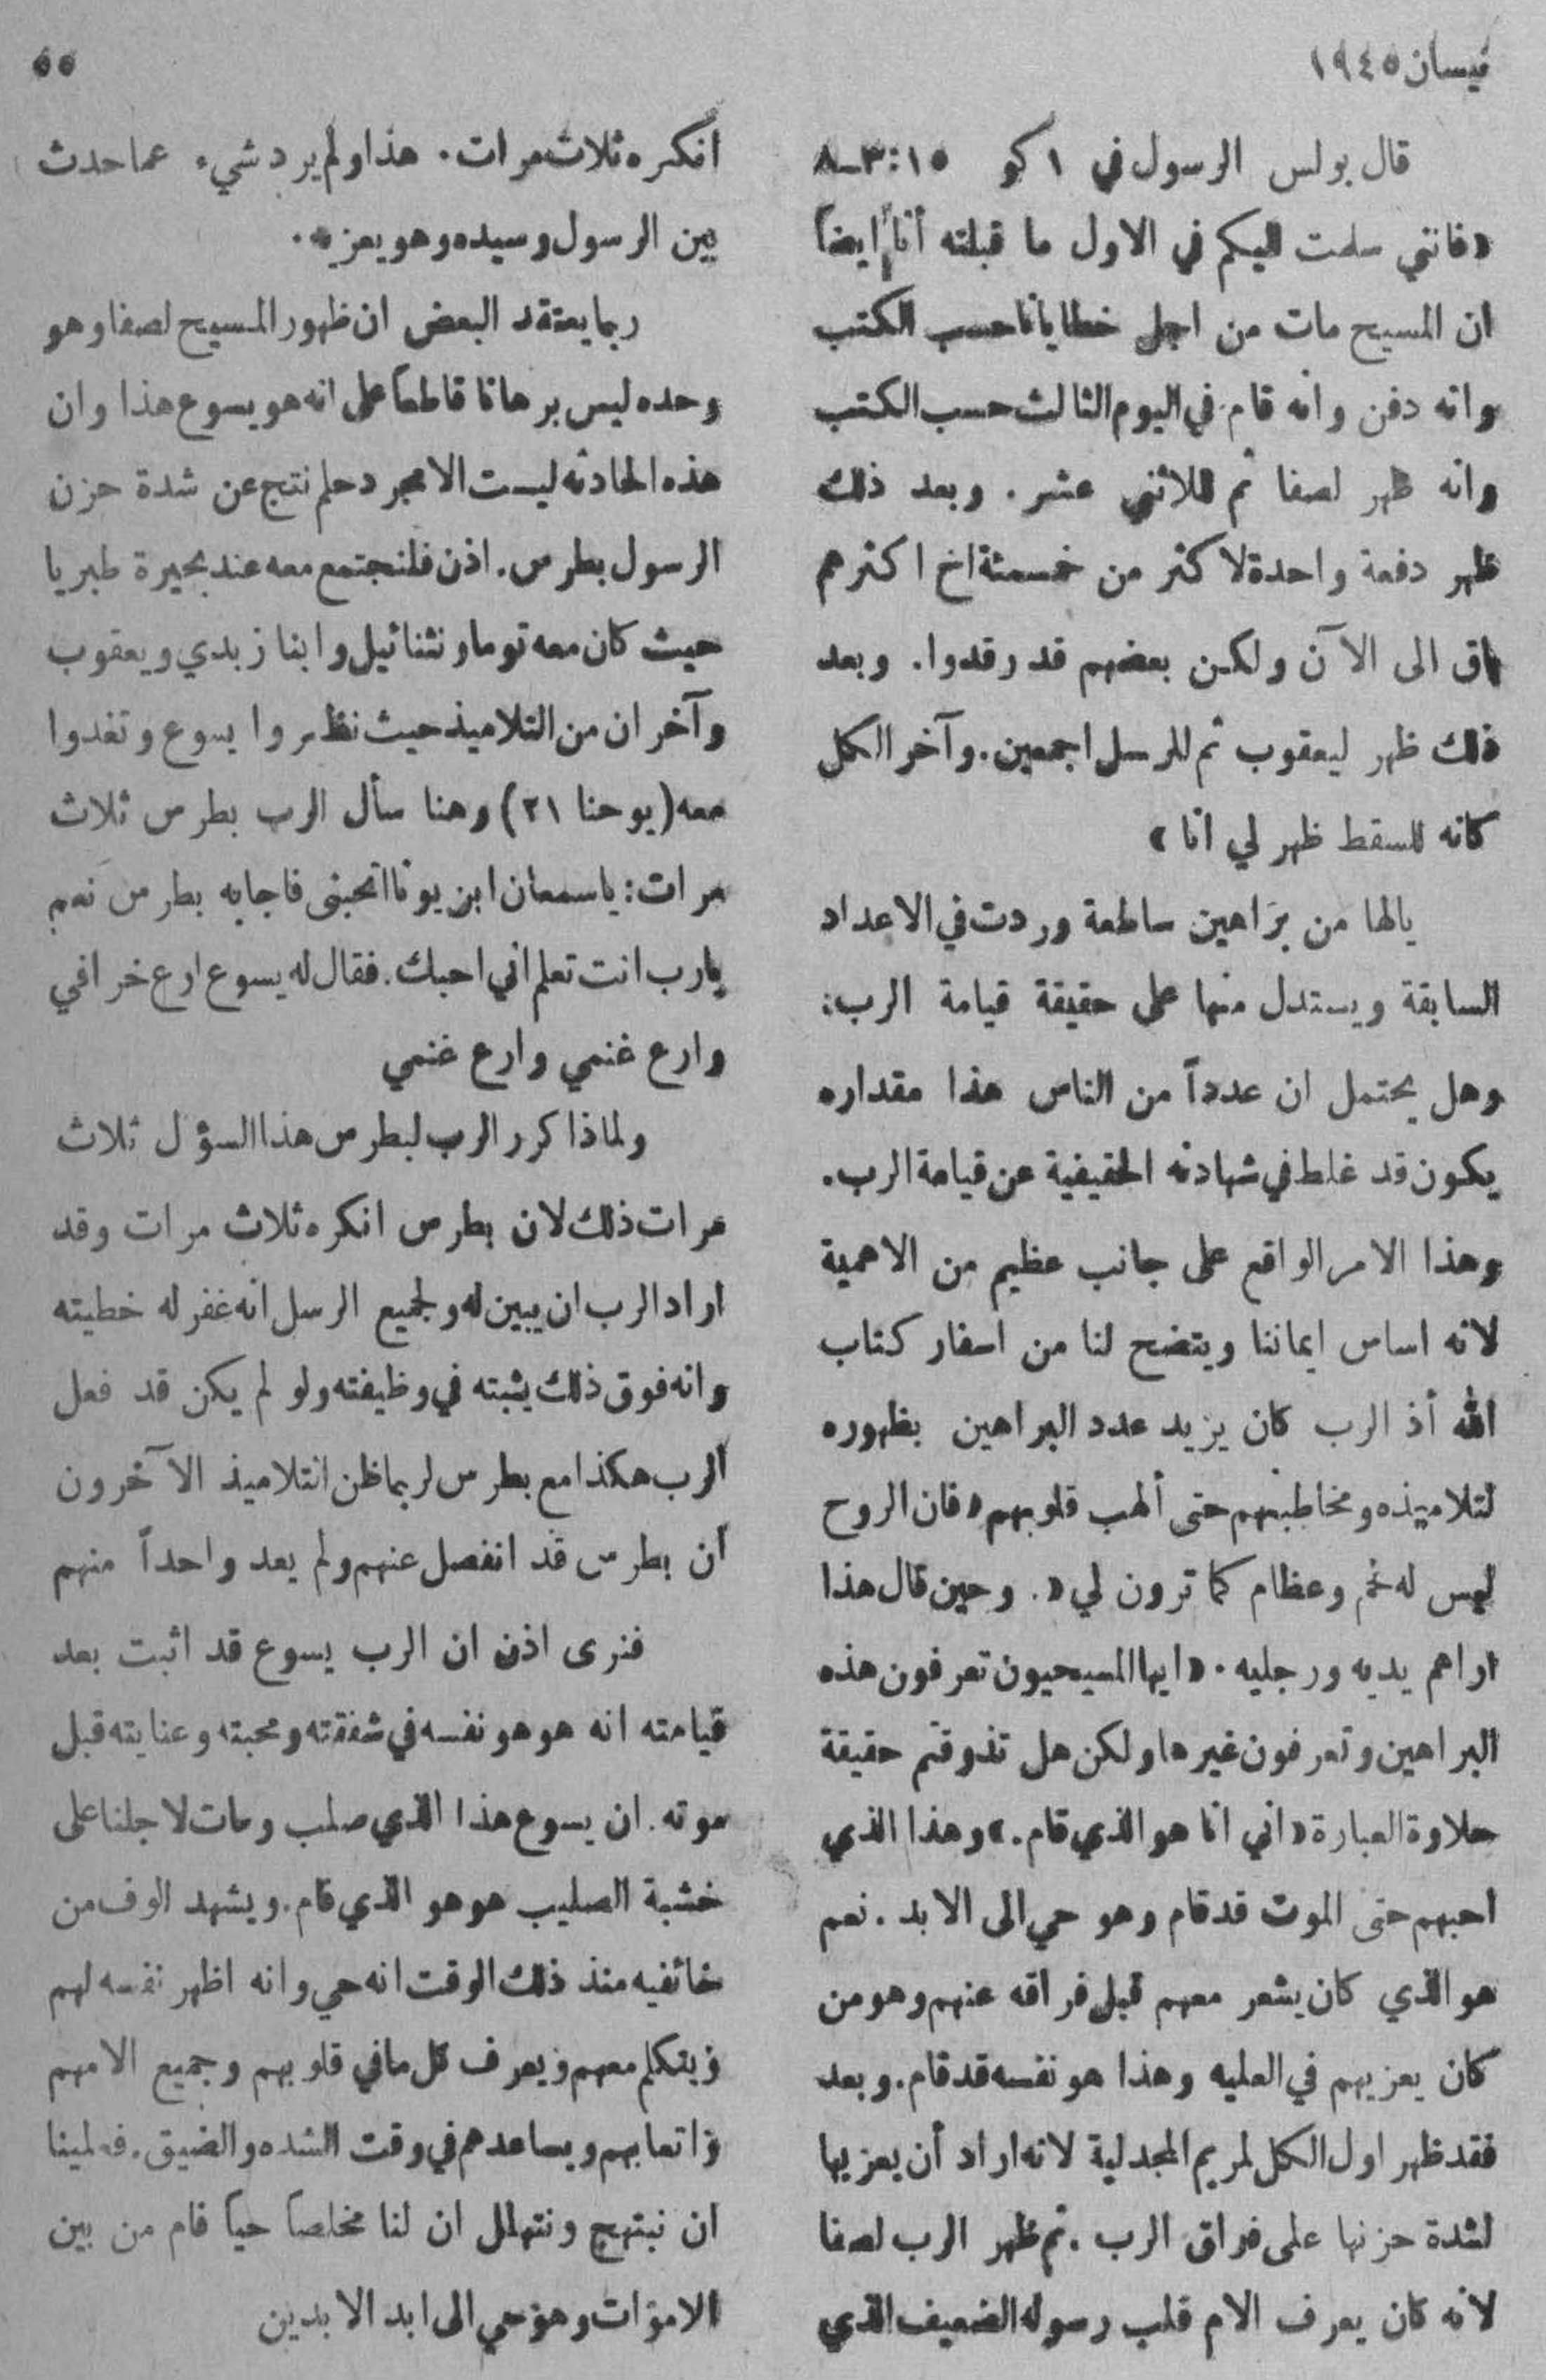 نيسان ١٩٤٥
٥٥
قال بولس الرسول في ١ كو ١٥:٣-٨
«فانني سلمت اليكم في الاول ما قبلته أنا ايضاً
ان المسيح مات من اجل خطايانا حسب الكتب
وانه دفن وانه قام في اليوم الثالث حسب الكتب
وانه ظهر لصفا ثم للاثني عشر. وبعد ذلك
ظهر دفعة واحدة لاكثر من خمسمئة اخ اكثرهم
باق الى الآن ولكن بعضهم قد رقدوا. وبعد
ذلك ظهر ليعقوب ثم للرسل اجمعين. وآخر الكل
كانه للسقط ظهر لي انا»
يالها من براهين ساطعة وردت في الاعداد
السابقة ويستدل منها على حقيقة قيامة الرب:
وهل يحتمل ان عدداً من الناس هذا مقداره
يكون قد غلط في شهادته الحقيقية عن قيامة الرب.
وهذا الامر الواقع على جانب عظيم من الاهمية
لانه اساس ايماننا ويتضح لنا من اسفار كتاب
الله أذ الرب كان يزيد عدد البراهين بظهوره
لتلاميذه ومخاطبتهم حتى ألهب قلوبهم «فان الروح
ليس له لحم وعظام كما ترون لي». وحين قال هذا
اراهم يديه ورجليه. «ايها المسيحيون تعرفون هذه
البراهين وتعرفون غيرها ولكن هل تذوقتم حقيقة
حلاوة العبارة «اني انا هو الذي قام.» وهذا الذي
احبهم حتى الموت قد قام وهو حي الى الابد. نعم
هو الذي كان يشعر معهم قبل فراقه عنهم وهو من
كان يعزيهم في العليه وهذا هو نفسه قد قام. وبعد
فقد ظهر اول الكل لمريم المجدلية لانه اراد أن يعزيها
لشدة حزنها على فراق الرب. ثم ظهر الرب لصفا
لانه كان يعرف الام قلب رسوله الضعيف الذي
انكره ثلاث مرات. هذا ولم يرد شيء عما حدث
بين الرسول وسيده وهو يعزيه.
ربما يعتقد البعض ان ظهور المسيح لصفا وهو
وحده ليس برهانا قاطعاً على انه هو يسوع هذا وان
هذه الحادثه ليست الا مجرد حلم نتج عن شدة حزن
الرسول بطرس. اذن فلنجتمع معه عند بحيرة طبريا
حيث كان معه توما ونثنائيل وابنا زبدي ويعقوب
وآخران من التلاميذ حيث نظروا يسوع وتغدوا
معه (يوحنا ٢١) وهنا سأل الرب بطرس ثلاث
مرات: ياسمعان ابن يونا اتحبني فاجابه بطرس نعم
يارب انت تعلم اني احبك. فقال له يسوع ارع خرافي
وارع غنمي وارع غنمي
ولماذا كرر الرب لبطرس هذا السؤل ثلاث
مرات ذلك لان بطرس انكره ثلاث مرات وقد
اراد الرب ان يبين له ولجميع الرسل انه غفر له خطيته
وانه فوق ذلك يثبته في وظيفته ولو لم يكن قد فعل
الرب هكذا مع بطرس لربما ظن التلاميذ الآخرون
أن بطرس قد انفصل عنهم ولم يعد واحداً منهم
فنرى اذن ان الرب يسوع قد اثبت بعد
قيامته انه هو هو نفسه في شفقته ومحبته وعنايته قبل
موته. ان يسوع هذا الذي صلب ومات لاجلنا على
خشبة الصليب هو هو الذي قام. ويشهد الوف من
خائفيه منذ ذلك الوقت انه حي وانه اظهر نفسه لهم
ويتكلم معهم ويعرف كل ما في قلوبهم وجميع الامهم
واتعابهم ويساعدهم في وقت الشده والضيق. فعلينا
ان نبتهج ونتهلل ان لنا مخلصاً حياً قام من بين
الاموات وهو حي الى ابد الابدين